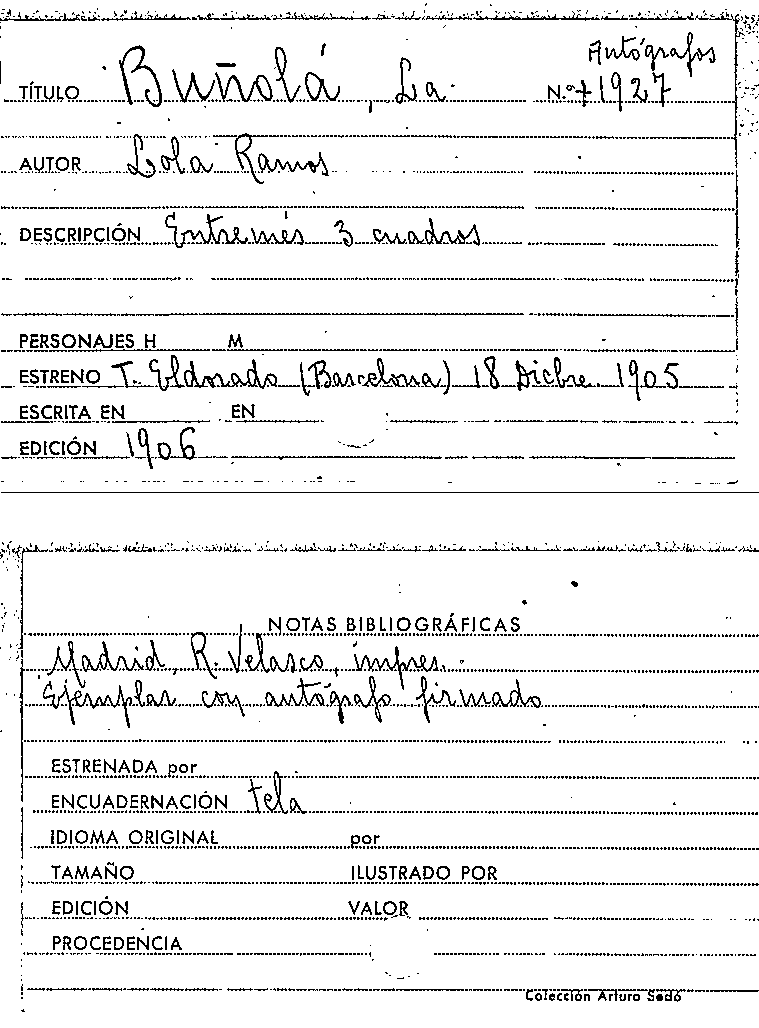 Autógrafos
TÍTULO Buñolá, La N.º +1927
AUTOR Lola Ramos
DESCRIPCIÓN Entremés 3 cuadros
PERSONAJES H M
ESTRENO T. Eldorado (Barcelona) 18 Dicbre. 1905
ESCRITA EN EN
EDICIÓN 1906
NOTAS BIBLIOGRÁFICAS
Madrid, R. Velasco, impres.
Ejemplar con autógrafo firmado
ESTRENADA por
ENCUADERNACIÓN tela
IDIOMA ORIGINAL por
TAMAÑO ILUSTRADO POR
EDICIÓN VALOR
PROCEDENCIA
Colección Arturo Sedó